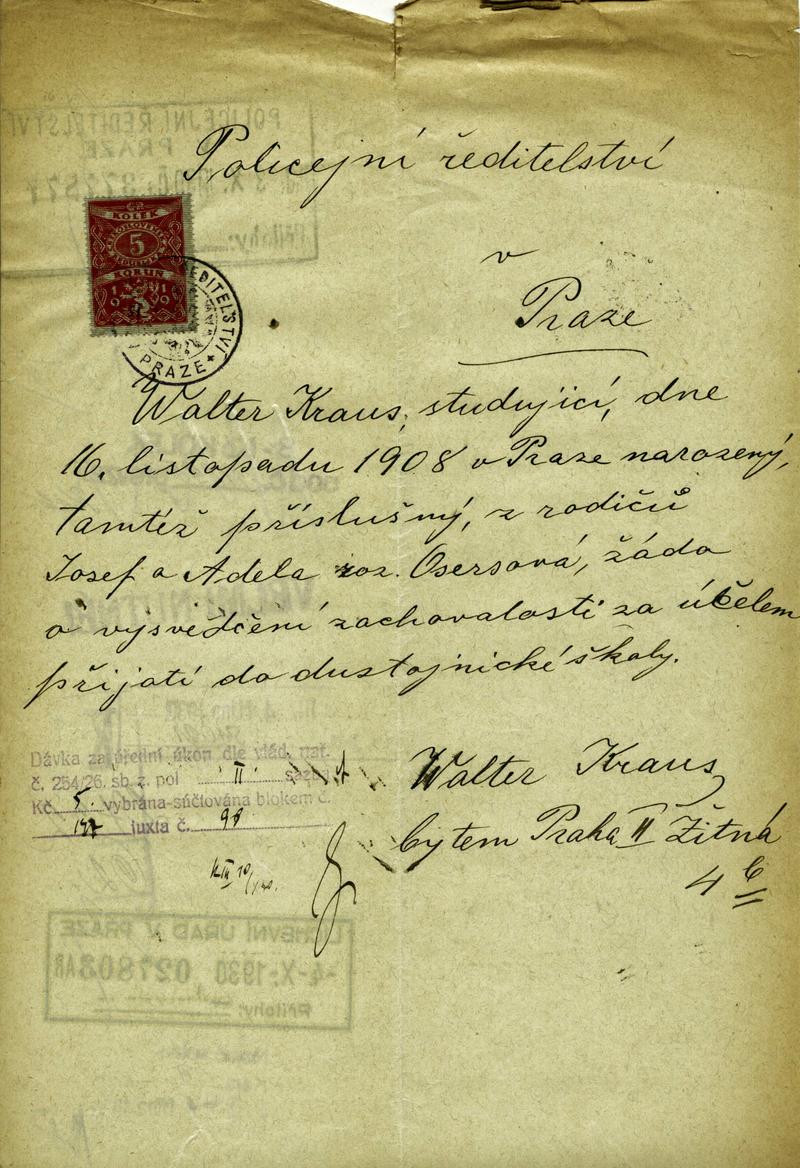 Policejní ředitelství
v
Praze
KOLEK
5
KORUN
1919
ŘEDITELSTVÍ
PRAZE
Walter Kraus, studující, dne
16. listopadu 1908 v Praze narozený,
tamtéž příslušný, z rodičů
Josef a Adela roz. Osersová, žádá
o vysvědčení zachovalosti za účelem
přijatí do dustojnické školy.
Walter Kraus
bytem Praha II Žitná
4
Dávka za úřední úkon dle vlád. nař.
č. 254/26. sb. z. pol II
Kč 5. vybrána-súčtována blokem č.
juxta č. 98
POLICEJNÍ ŘEDITELSTVÍ
PRAZE
Přílohy:
ÚŘAD V PRAZE
-4-X-1930 027803
Přílohy: